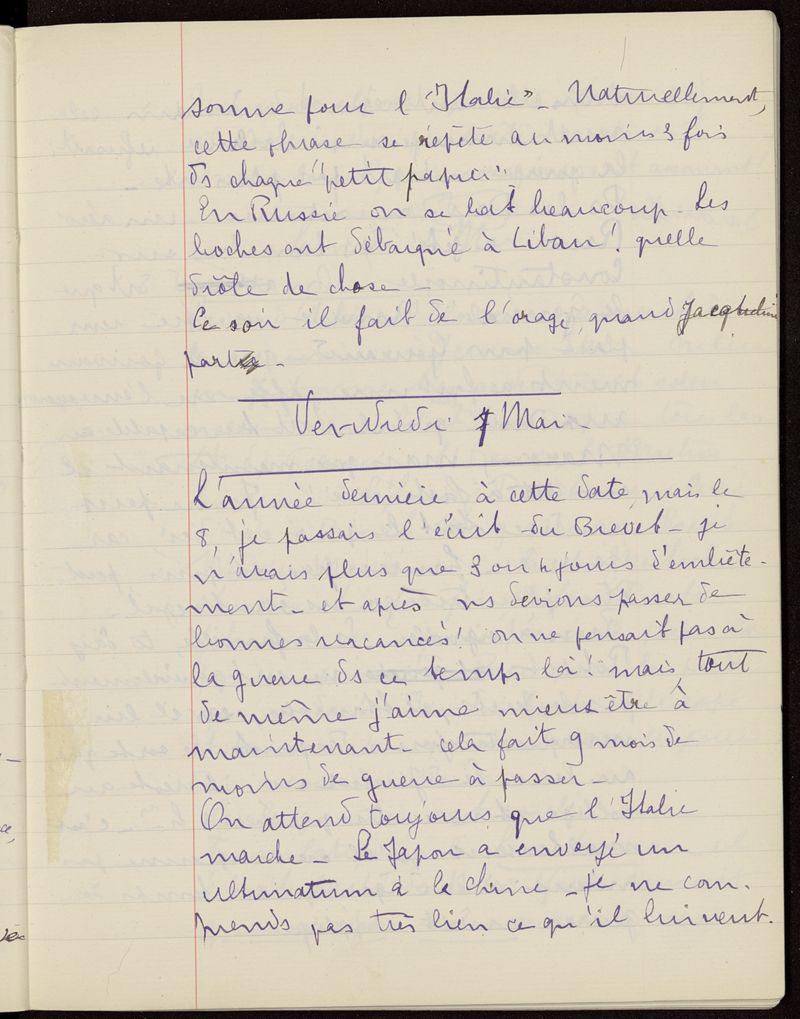 sonne pour l'"Italie" _ Naturellement,
cette phrase se répète au moins 3 fois
ds chaque "petit papier"
En Russie on se bat beaucoup. Les
boches ont débarqué à Libau! quelle
drôle de chose _
Ce soir il fait de l'orage, grand Jacqueline
part _
Vendredi 7 Mai _
L'année dernière à cette date, mais le
8, je passais l'écrit du Brevet _ je
n'avais plus que 3 ou 4 jours d'embête-
ment _ et après ns devions passer de
bonnes vacances! on ne pensait pas à
la guerre ds ce temps là! mais, tout
de même j'aime mieux être à
maintenant _ cela fait 9 mois de
moins de guerre à passer _
On attend toujours que l'Italie
marche _ Le Japon a envoyé un
ultimatum à la chine _ je ne com-
prends pas très bien ce qu'il lui veut.